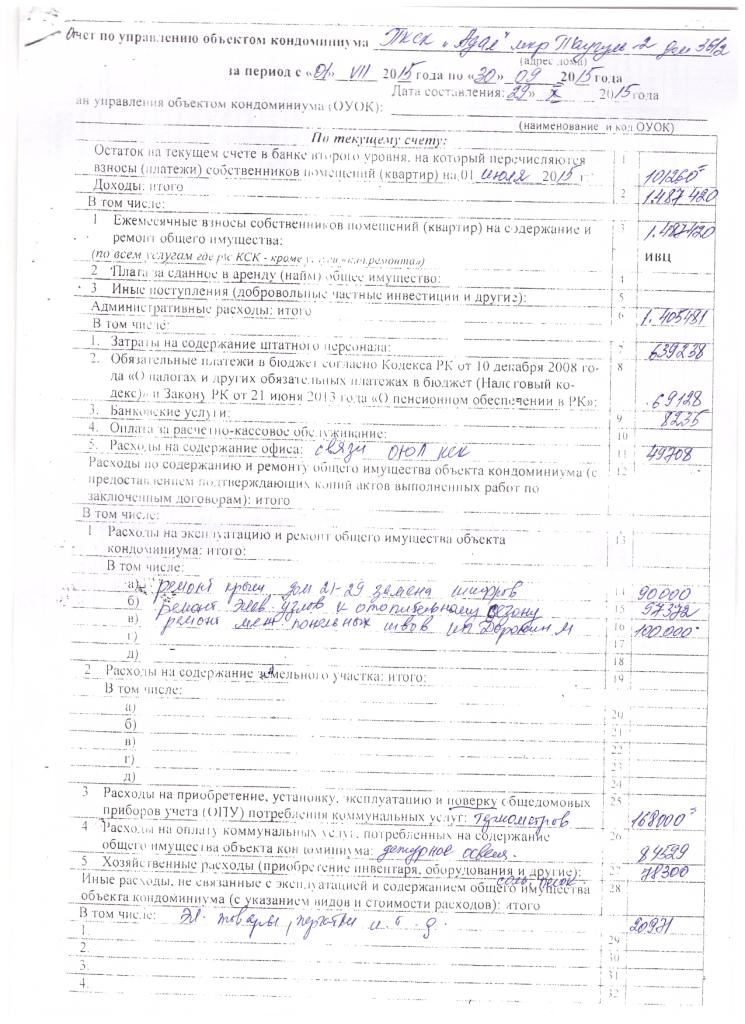 Отчет по управлению объектом кондоминиума ПКСК "Адал" мкр Таугуль-2 дом 36/2
(адрес дома)
за период с «01» VII 2015 года по «30» 09 2015 года
Дата составления: 29» X 2015 года
ан управления объектом кондоминиума (ОУОК):
(наименование и код ОУОК)
По текущему счету:
Остаток на текущем счете в банке второго уровня, на который перечисляются 1
взносы (платежи) собственников помещений (квартир) на 01 июля 2015 г. 101260=
Доходы: итого 2 1.487 420
В том числе:
1 Ежемесячные взносы собственников помещений (квартир) на содержание и 3 1.487420
ремонт общего имущества:
(по всем услугам где р/с КСК - кроме услуги «кап.ремонта») ИВЦ
2 Плата за сданное в аренду (найм) общее имущество: 4
3 Иные поступления (добровольные частные инвестиции и другие): 5
Административные расходы: итого 6 1.405481
В том числе:
1. Затраты на содержание штатного персонала: 7 639238
2. Обязательные платежи в бюджет согласно Кодекса РК от 10 декабря 2008 го- 8
да «О налогах и других обязательных платежах в бюджет (Налоговый ко-
декс)» и Закону РК от 21 июня 2013 года «О пенсионном обеспечении в РК»: 69128
3. Банковские услуги: 9 8235
4. Оплата за расчетно-кассовое обслуживание: 10
5. Расходы на содержание офиса: связи ОЮЛ КСК 11 49708
Расходы по содержанию и ремонту общего имущества объекта кондоминиума (с 12
предоставлением подтверждающих копий актов выполненных работ по
заключенным договорам): итого
В том числе:
1 Расходы на эксплуатацию и ремонт общего имущества объекта 13
кондоминиума: итого:
В том числе:
а) ремонт крыш дом 21-29 замена шифров 14 90000
б) Ремонт Элев. узлов к отопительному сезону 15 97372
в) ремонт меж панельных швов ип Дорохин М 16 100000=
г) 17
д) 18
2 Расходы на содержание земельного участка: итого: 19
В том числе:
а) 20
б) 21
в) 22
г) 23
д) 24
3 Расходы на приобретение, установку, эксплуатацию и поверку общедомовых 25
приборов учета (ОПУ) потребления коммунальных услуг: термометров 168000=
4 Расходы на оплату коммунальных услуг, потребленных на содержание 26
общего имущества объекта кондоминиума: дежурное освещ. 84529
5 Хозяйственные расходы (приобретение инвентаря, оборудования и другие): 27 78300
Иные расходы, не связанные с эксплуатацией и содержанием общего имущества 28
объекта кондоминиума (с указанием видов и стоимости расходов): итого
В том числе: Эл. товары, перчатки и.т.д. 20971
1. 29
2. 30
3. 31
4. 32